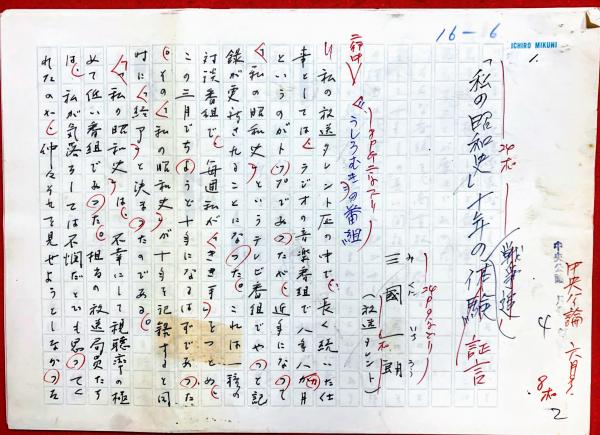 16-6
ICHIRO MIKUNI
1
中央公論 六月号
「私の昭和史」十年の体験
戦争達
証言
三國一朗
みくに いちろう
(放送タレント)
4
2
うしろむきの番組
私の放送タレント歴の中で、長く続いた仕
事としては、ラジオの音楽番組で八年八か月
というのがトップであったが、近年になって
「私の昭和史」というテレビ番組でやっと記
録が更新されることになった。これは一種の
対談番組で、毎週私がききてをつとめ、
この三月でちょうど十年になるはずであった。
その「私の昭和史」が十年を記録すると同
時に「終了」と決まったのである。
「私の昭和史」は、不幸にして視聴率の極
めて低い番組であった。担当の放送局員たち
は、私が気落ちしては不憫だとでも思ってく
れたのか、仲々それを見せようとしなかった